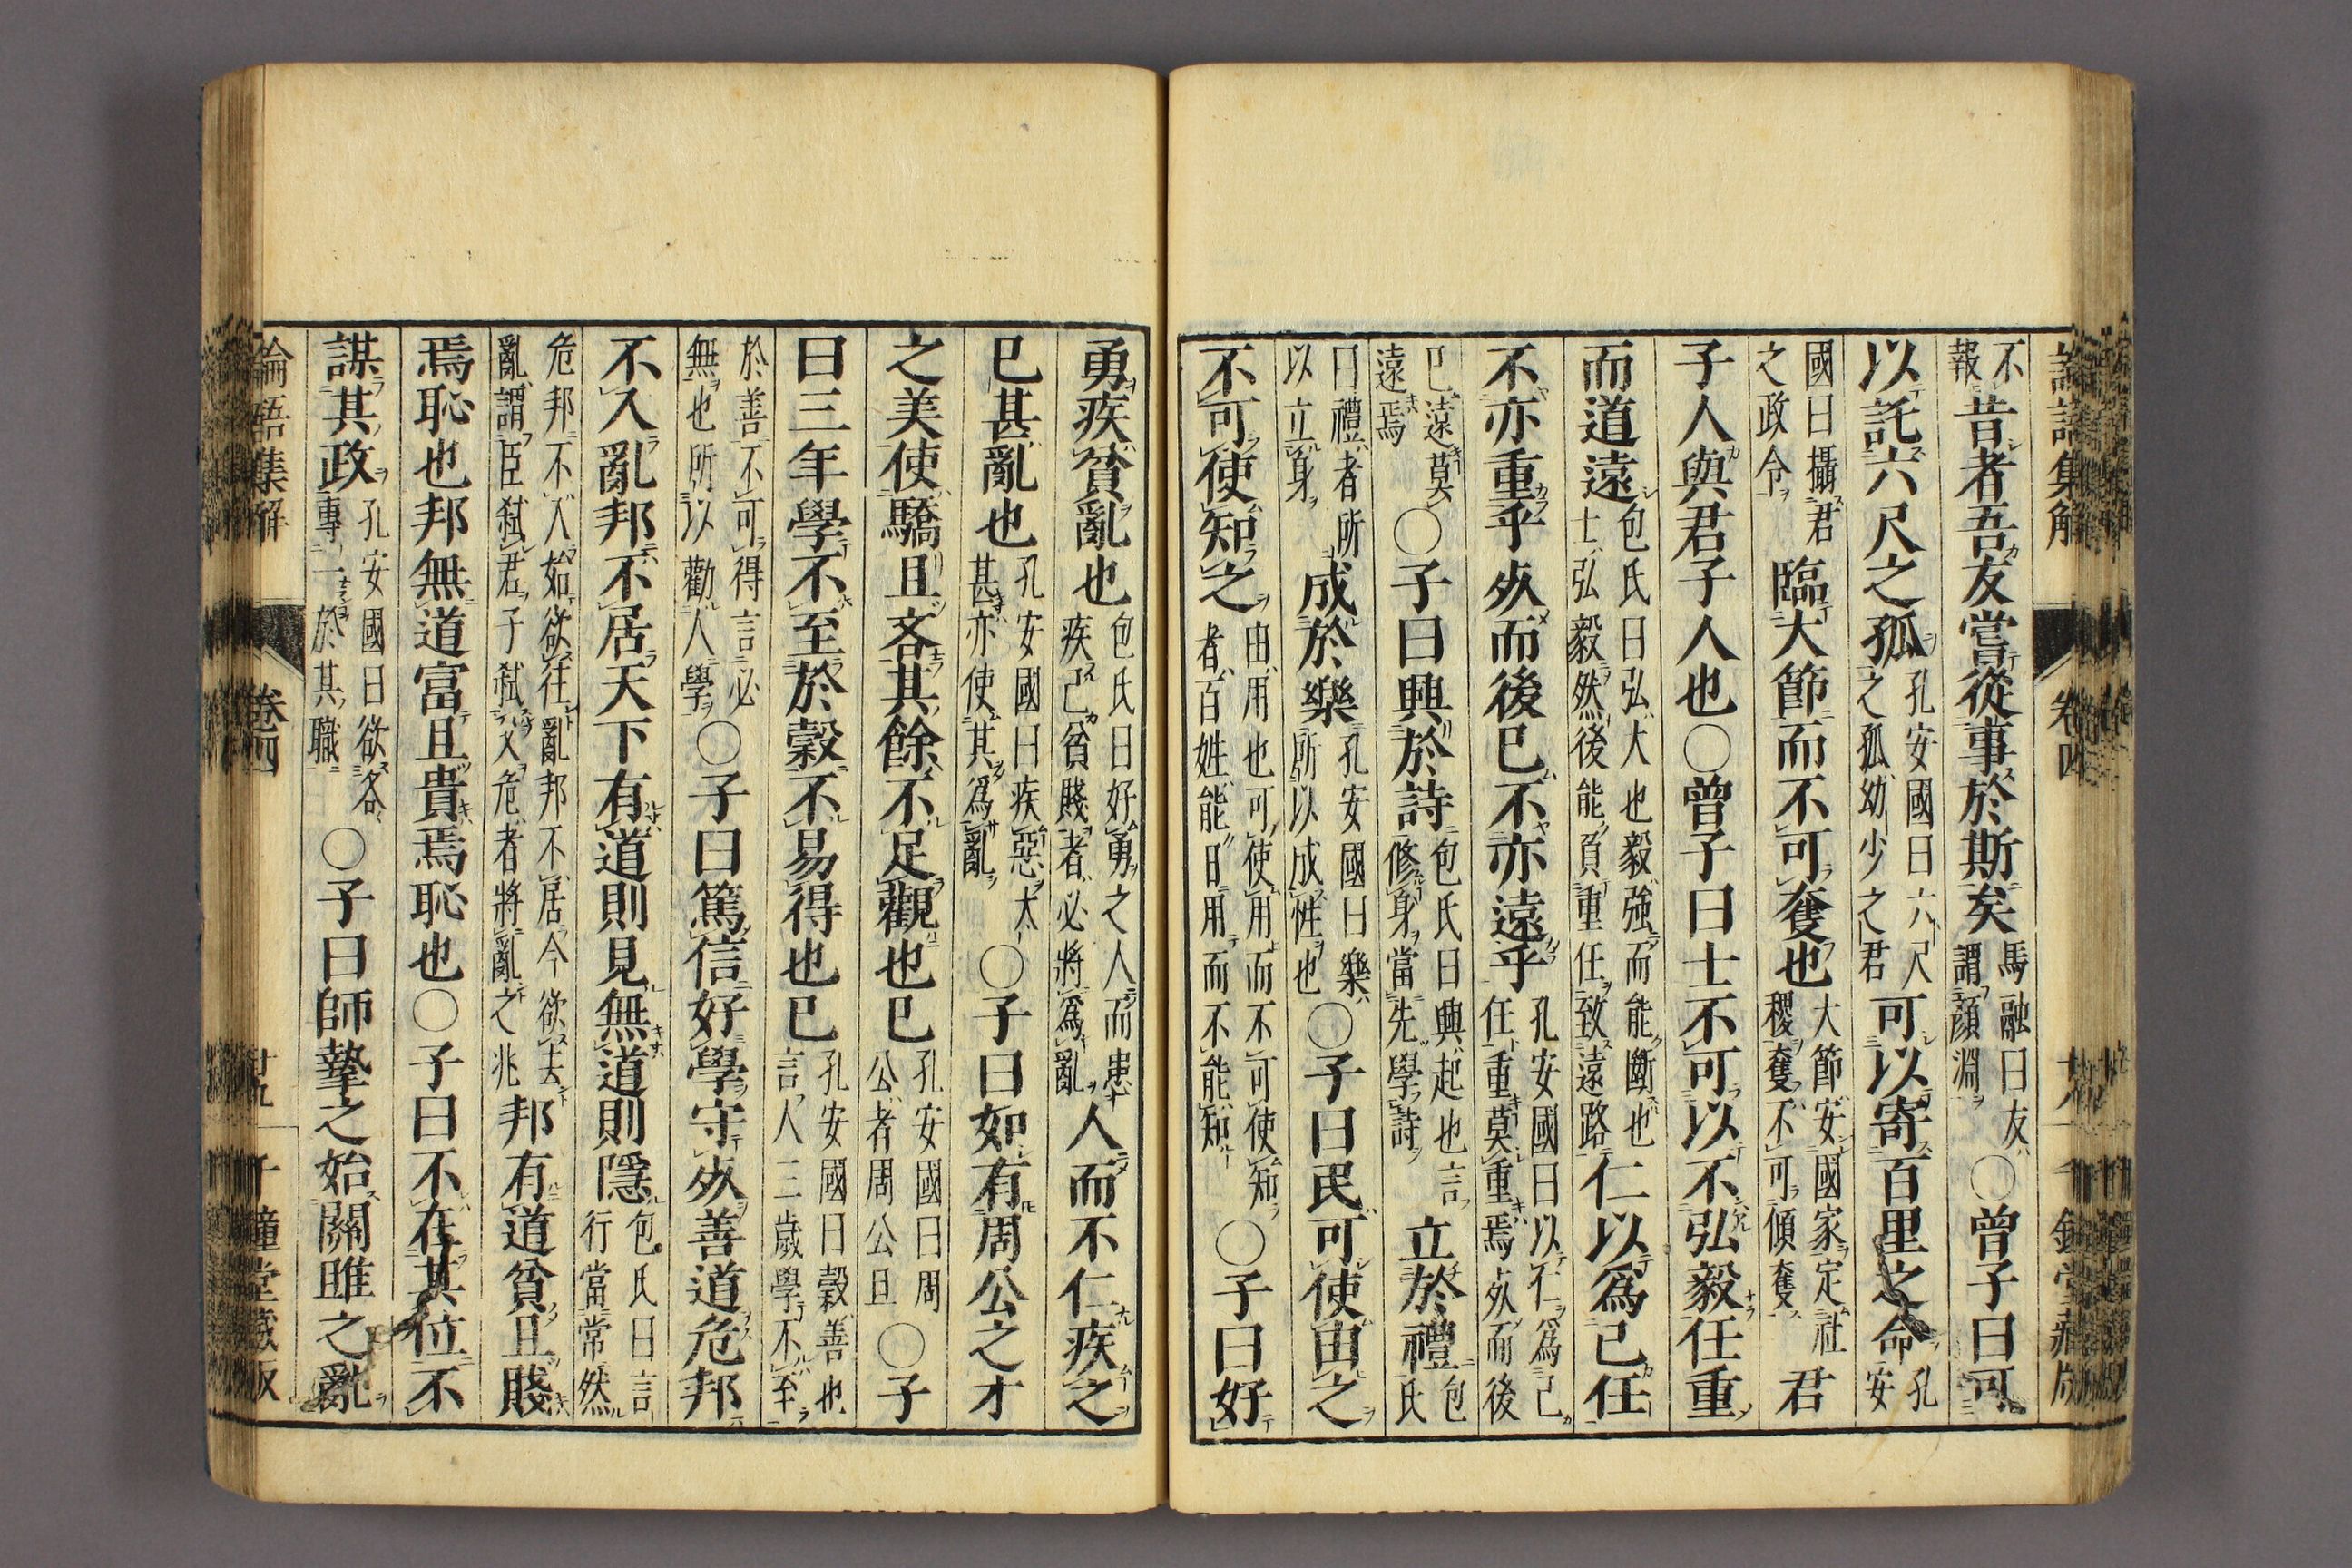 論語集解 卷四
不報昔者吾友嘗從事於斯矣馬融曰友謂顔淵○曾子曰可
以託六尺之孤孔安國曰六尺之孤幼少之君可以寄百里之命孔安
國曰攝君之政令臨大節而不可奪也大節安國家定社稷奪不可傾奪君
子人與君子人也○曾子曰士不可以不弘毅任重
而道遠包氏曰弘大也毅強而能斷也士弘毅然後能負重任致遠路仁以爲己任
不亦重乎死而後已不亦遠乎孔安國曰以仁爲己任重莫重焉死而後
已遠莫遠焉○子曰興於詩包氏曰興起也言修身當先學詩立於禮包氏
曰禮者所以立身成於樂孔安國曰樂所以成性也○子曰民可使由之
不可使知之由用也可使用而不可使知者百姓能日用而不能知○子曰好
勇疾貧亂也包氏曰好勇之人而患疾己貧賤者必將爲亂人而不仁疾之
已甚亂也孔安國曰疾惡太甚亦使其爲亂○子曰如有周公之才
之美使驕且吝其餘不足觀也已孔安國曰周公者周公旦○子
曰三年學不至於穀不易得也已孔安國曰穀善也言人三歲學不至
於善不可得言必無也所以勸人學○子曰篤信好學守死善道危邦
不入亂邦不居天下有道則見無道則隱包氏曰言行當常然
危邦不入始欲往亂邦不居今欲去亂謂臣弑君子弑父危者將亂之兆邦有道貧且賤
焉恥也邦無道富且貴焉恥也○子曰不在其位不
謀其政孔安國曰欲各專一於其職○子曰師摯之始關雎之亂
論語集解 卷四 廿九 千鐘堂藏版